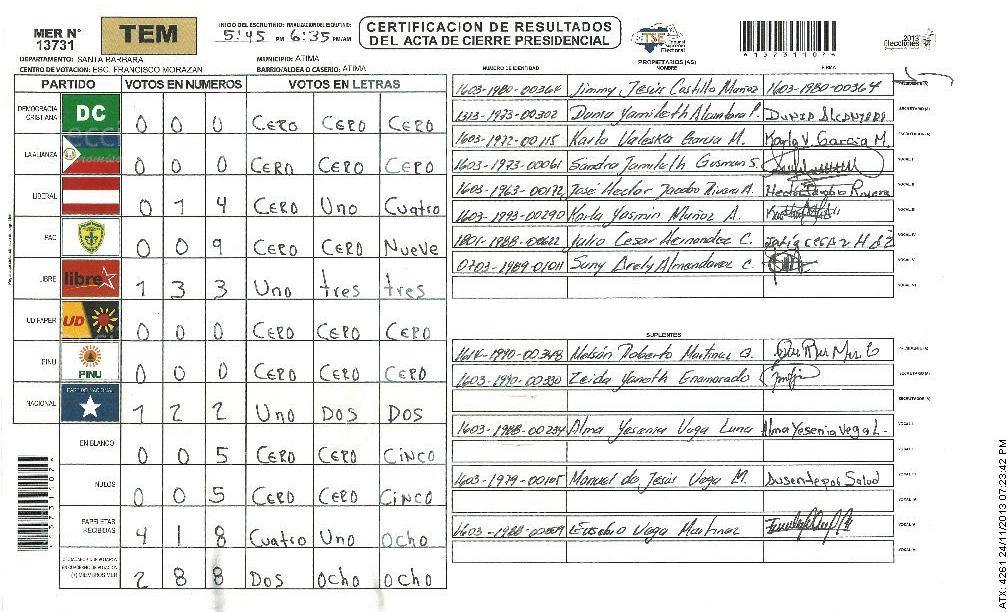 MER N° 13731
TEM
INICIO DEL ESCRUTINIO: FINALIZACION DEL ESCRUTINIO:
5:45 PM 6:35 PM/AM
CERTIFICACION DE RESULTADOS
DEL ACTA DE CIERRE PRESIDENCIAL
TSE
Tribunal Supremo Electoral
2013 Elecciones
DEPARTAMENTO: SANTA BARBARA
MUNICIPIO: ATIMA
CENTRO DE VOTACION: ESC. FRANCISCO MORAZAN
BARRIO/ALDEA O CASERIO: ATIMA
PARTIDO VOTOS EN NUMEROS VOTOS EN LETRAS
DEMOCRACIA CRISTIANA DC 0 0 0 CERO CERO CERO
LA ALIANZA 0 0 0 CERO CERO CERO
LIBERAL 0 1 4 CERO UNO CUATRO
PAC 0 0 9 CERO CERO NUEVE
LIBRE libre 1 3 3 UNO tres tres
UD FAPER UD 0 0 0 CERO CERO CERO
PINU PINU 0 0 0 CERO CERO CERO
NACIONAL PARTIDO NACIONAL 1 2 2 UNO DOS DOS
EN BLANCO 0 0 5 CERO CERO CINCO
NULOS 0 0 5 CERO CERO CINCO
PAPELETAS RECIBIDAS 4 1 8 CUATRO UNO OCHO
(+) MIEMBROS MER 2 8 8 DOS OCHO OCHO
PROPIETARIOS (AS)
NUMERO DE IDENTIDAD NOMBRE FIRMA
1603-1980-00364 Jimmy Jesús Castillo Muñoz 1603-1980-00364
1313-1973-00302 Dunia Yamileth
1603-1972-00115 Karla Valeska Garcia M. Karla V Garcia M.
1603-1973-00061 Sandra Jamileth Gusman S.
1603-1963-00172 José Hector
1603-1993-00290 Karla Yasmin Muñoz A.
1801-1988- Julio Cesar Hernandez C.
0703-1989-01011 Suny Arely Almendarez C.
SUPLENTES
1614-1990-00348 Nelsón Roberto Martinez G.
1603-1990-00330 Zeida Yanoth Enamorado
1603-1988-00234 Alma Yesenia Vega Luna Alma Yesenia Vega L.
1603-1979-00105 Manuel de Jesús Vega M. Salud
1603-1988- Eusebio Vega Martinez
1373110 7 6
ATX: 4261 24/11/2013 07:23:42 PM